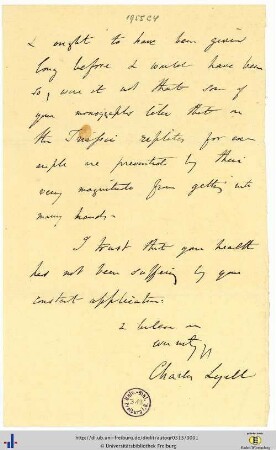 I ought to have been given
long before I would have been
so, were it not that some of
your monographs like that on
the Triassic reptiles for ex-
ample are prevented by their
very magnitude from getting into
many hands.
I trust that your health
has not been suffering by your
constant application.
I believe me
ever
Charles Lyell
© Universitätsbibliothek Freiburg